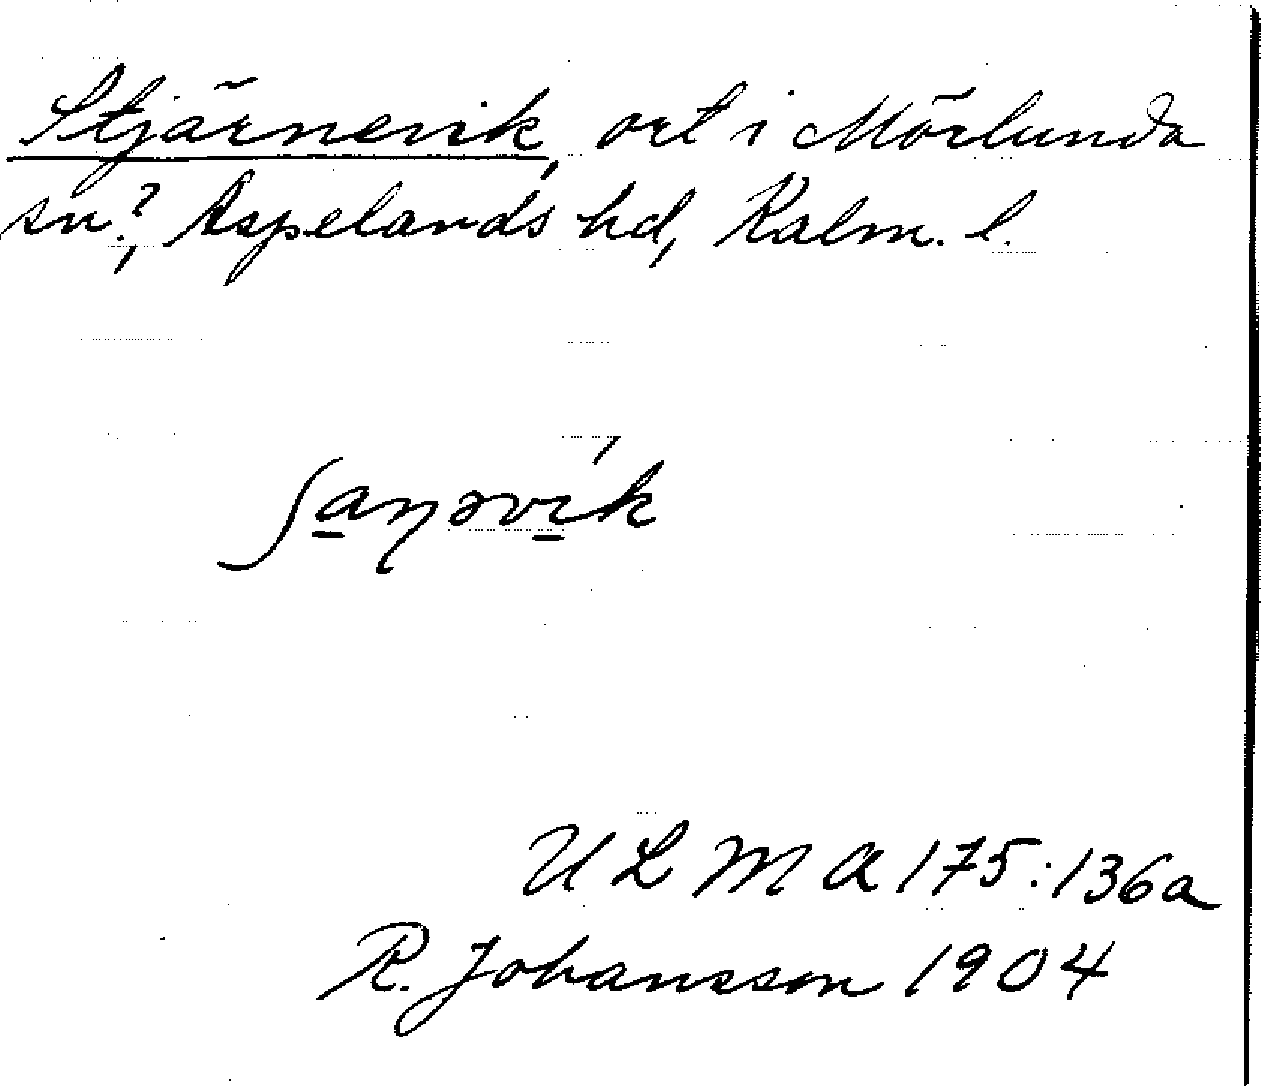 Stjärnevik, ort i Mörlunda
sn?, Aspelands hd, Kalm. l.
ʃa̱ŋəví̱k
ULMA 175:136a
R. Johansson 1904